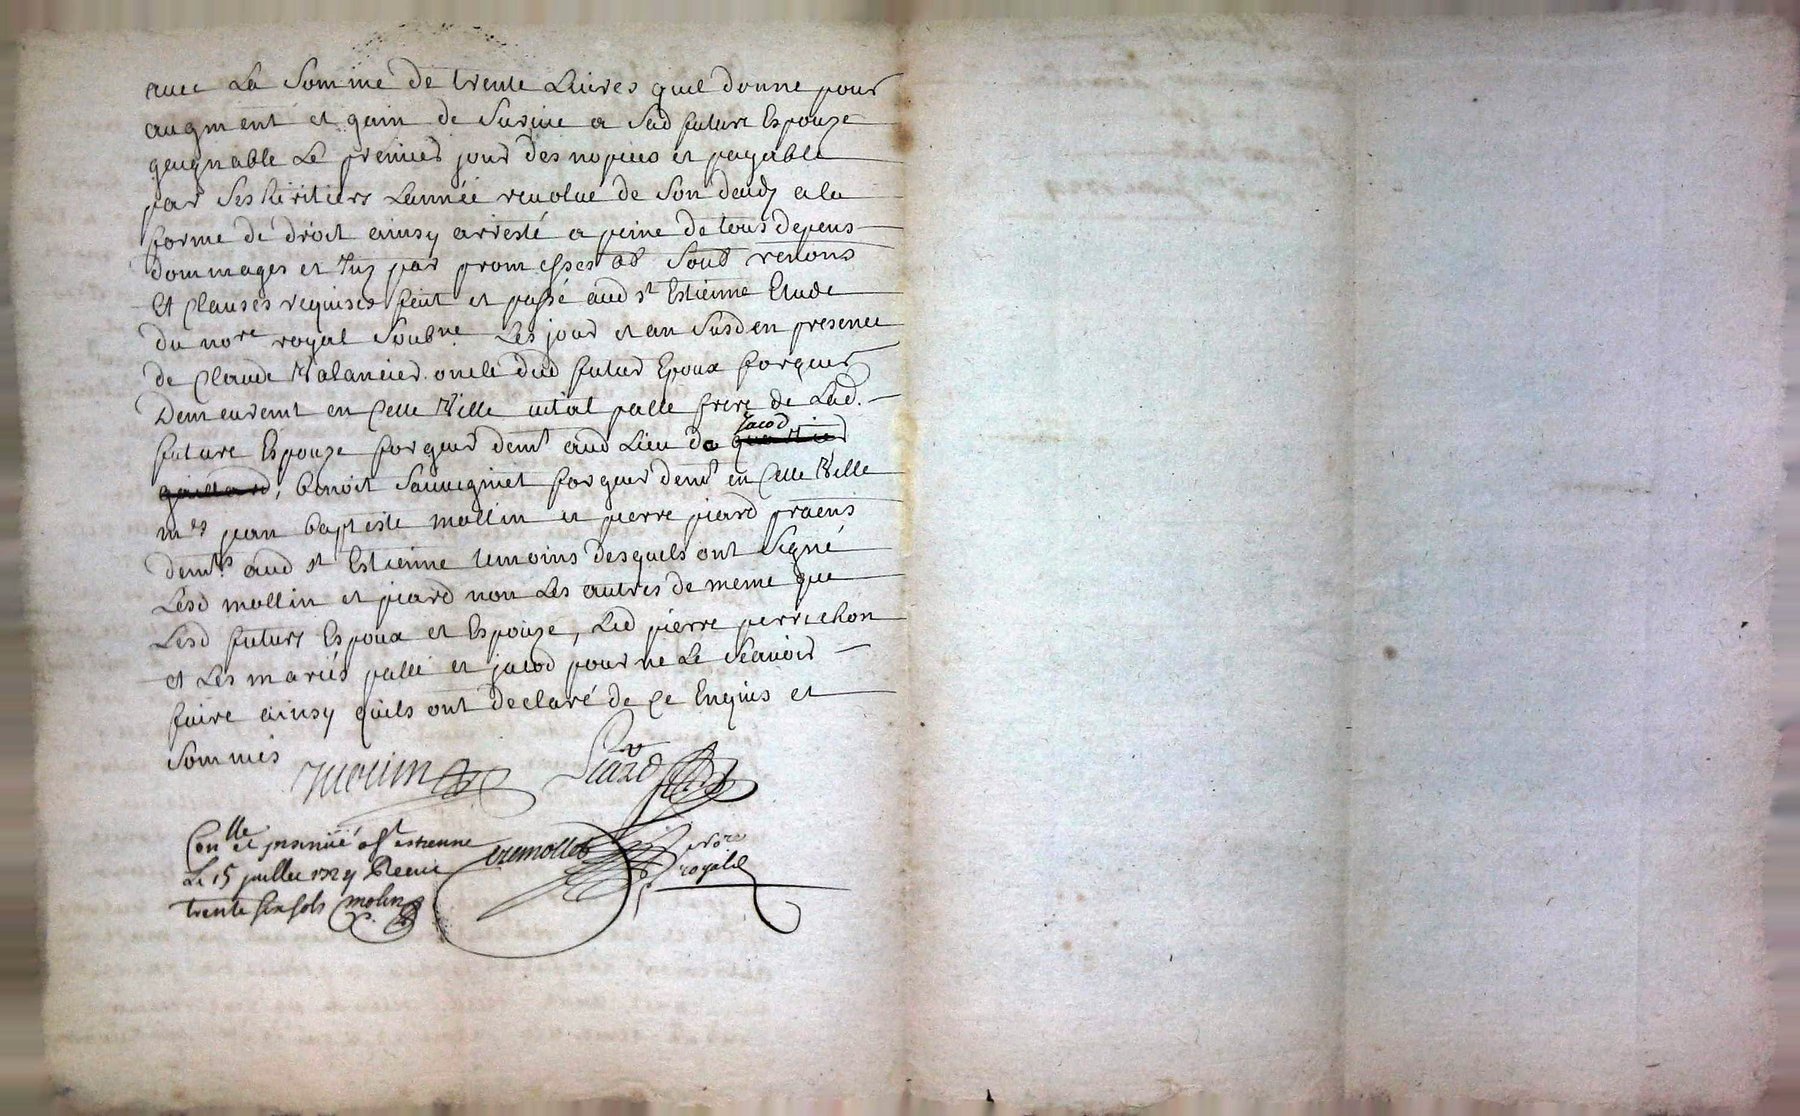 avec La Somme de trente Livres quil donne pour
augment et gain de Survie a Sad future Espouze
gaignable Le premier jour des nopces et payable
par Ses héritiers Lannée revolue de Son deceds a la
forme de droit ainsy arresté a peine de tous depens
dommages et par promesses ob Soub renons
Et Clauses requises fait et passé aud st Estienne Etude
du nore royal Soubne Les jour et an Susd en presence
de Claude Valancier oncle dud futur Epoux forgeur
Demeurent en Cette Ville vital palle frere de Lad.
future Espouze forgeur demt aud Lieu de jacod
benoit Sauvegniet forgeur demt en Cette Ville
mes jean baptiste mollin et pierre piard praens
demts aud st Estienne temoins desquels ont Signé
Lesd mollin et piard non Les autres de meme que
Lesd futurs Espoux et Espouze, Led pierre perrichon
et Les mariés palle et jacod pour ne Le Scavoir
faire ainsy quils ont declaré de Ce Enquis et
Sommés
molin Piard
Conlle et insinué a St estienne
Le 15 juillet 1729 Receu
trente six sols molin
nore
royal